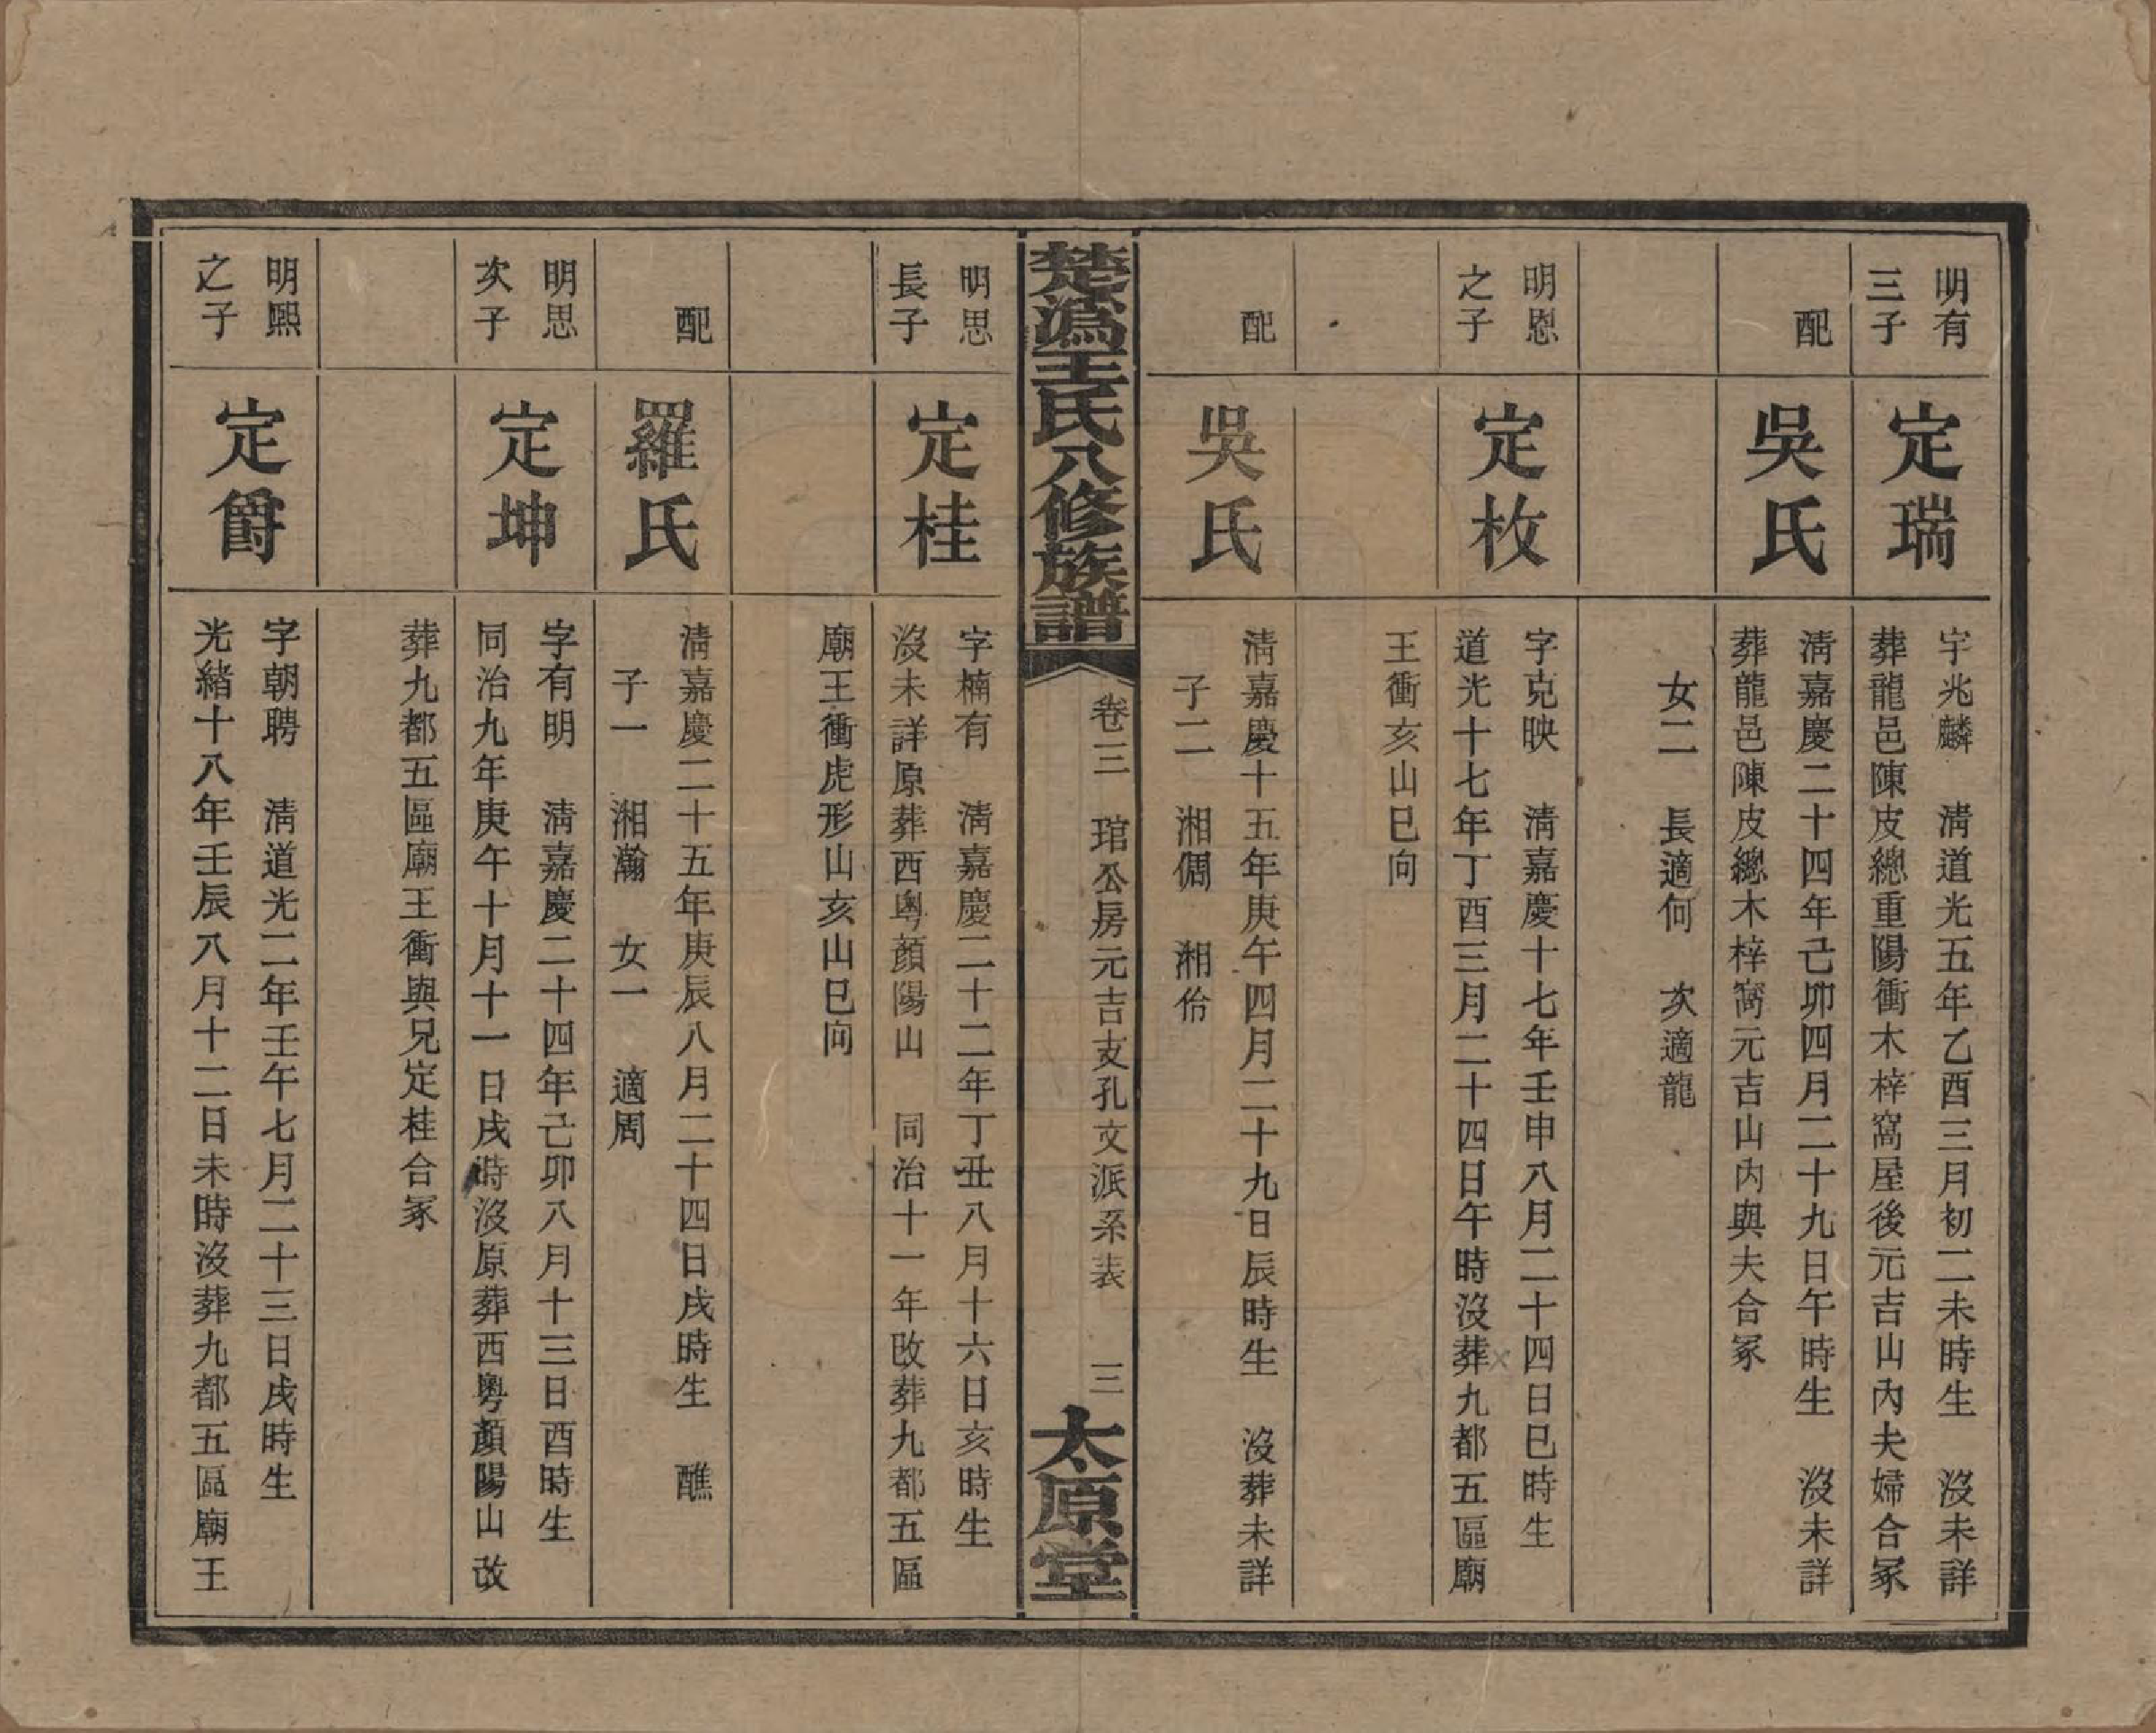 明有
三子
定瑞
字兆麟　清道光五年乙酉三月初二未時生　沒未詳
葬龍邑陳皮總重陽衝木梓窩屋後元吉山內夫婦合冢
配
吳氏
清嘉慶二十四年己卯四月二十九日午時生　沒未詳
葬龍邑陳皮總木梓窩元吉山內與夫合冢
女二　長適何　次適龍
明恩
之子
定枚
字克映　清嘉慶十七年壬申八月二十四日巳時生
道光十七年丁酉三月二十四日午時沒葬九都五區廟
王衝亥山巳向
配
吳氏
清嘉慶十五年庚午四月二十九日辰時生　沒葬未詳
子二　湘倜　湘佁
楚溈王氏八修族譜
卷三　琯公房元吉支孔文派系表　三
太原堂
明思
長子
定桂
字楠有　清嘉慶二十二年丁丑八月十六日亥時生
沒未詳原葬西粵顏陽山　同治十一年改葬九都五區
廟王衝虎形山亥山巳向
配
羅氏
清嘉慶二十五年庚辰八月二十四日戌時生　醮
子一　湘瀚　女一　適周
明思
次子
定坤
字有明　清嘉慶二十四年己卯八月十三日酉時生
同治九年庚午十月十一日戌時沒原葬西粵顏陽山改
葬九都五區廟王衝與兄定桂合冢
明熙
之子
定爵
字朝聘　清道光二年壬午七月二十三日戌時生
光緒十八年壬辰八月十二日未時沒葬九都五區廟王